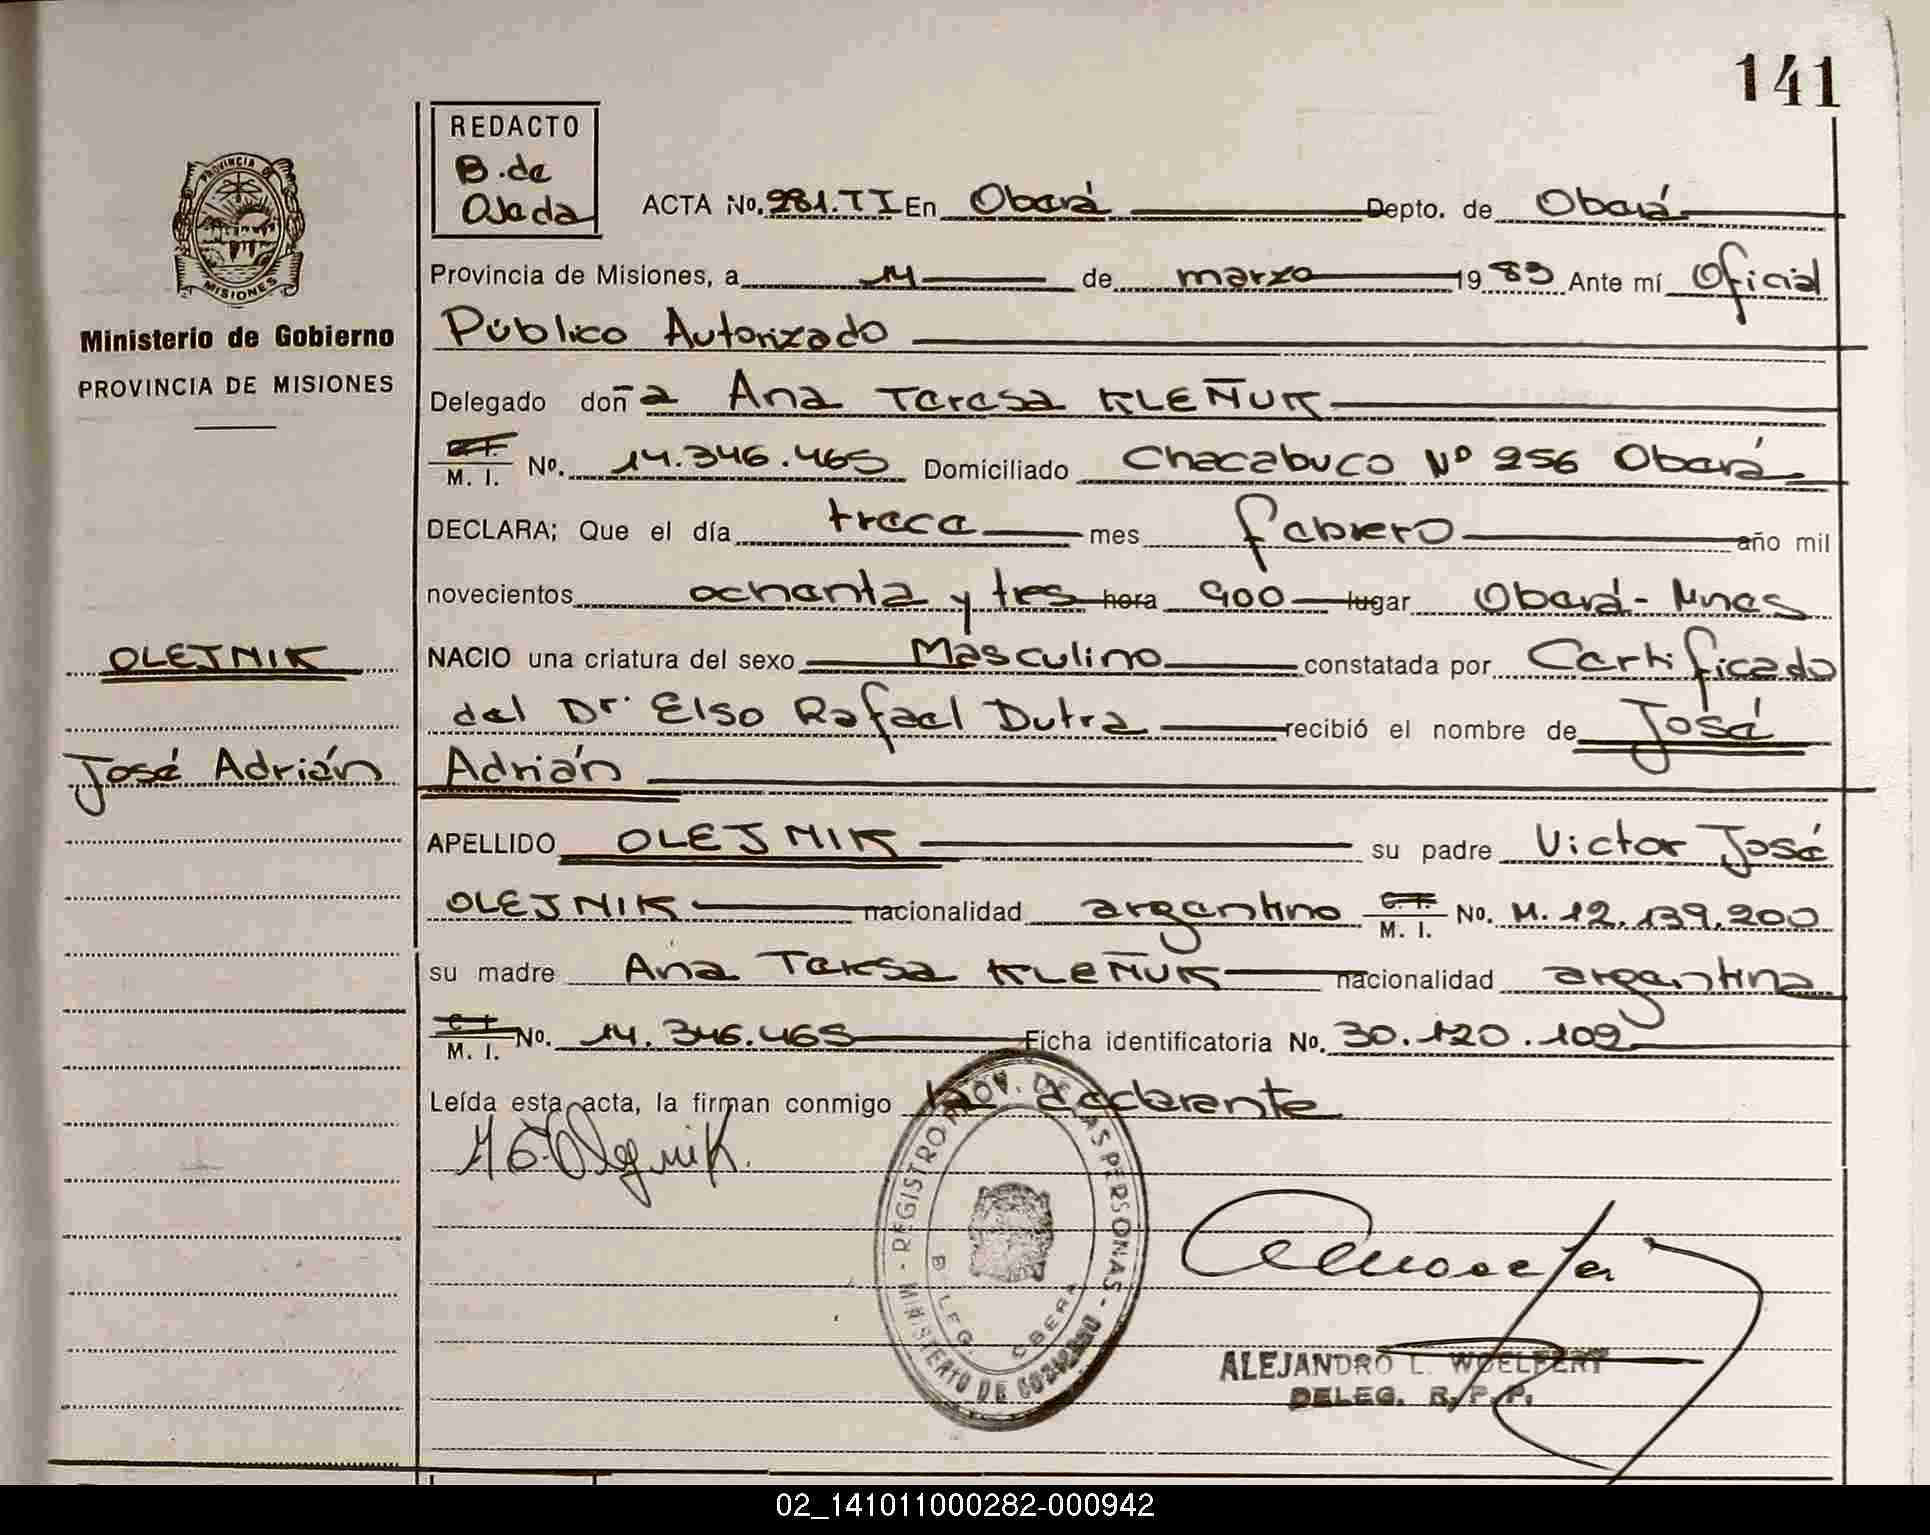 141
REDACTO
B. de
Ojeda
ACTA No. 281.TI En Oberá Depto. de Oberá
PROVINCIA DE
MISIONES
Provincia de Misiones, a 14 de marzo 1983 Ante mí Oficial
Ministerio de Gobierno
Público Autorizado
PROVINCIA DE MISIONES
Delegado doña Ana Teresa KLEÑUK
C. I.
M. I. No. 14.346.465 Domiciliado Chacabuco Nº 256 Oberá
DECLARA; Que el día trece mes febrero año mil
novecientos ochenta y tres hora 900 lugar Oberá - Mnes
OLEJNIK
NACIO una criatura del sexo Masculino constatada por Certificado
del Dr. Elso Rafael Dutra recibió el nombre de José
José Adrián
Adrián
APELLIDO OLEJNIK su padre Victor José
OLEJNIK nacionalidad argentino C. I. M. I. No. M. 12.139.200
su madre Ana Teresa KLEÑUK nacionalidad argentina
C. I.
M. I. No. 14.346.465 Ficha identificatoria No. 30.120.109
Leída esta acta, la firman conmigo declarante
REGISTRO PROV. DE LAS PERSONAS - MINISTERIO DE GOBIERNO -
DELEG. OBERA
ALEJANDRO L. WOELFERT
DELEG. R. P. P.
02_141011000282-000942